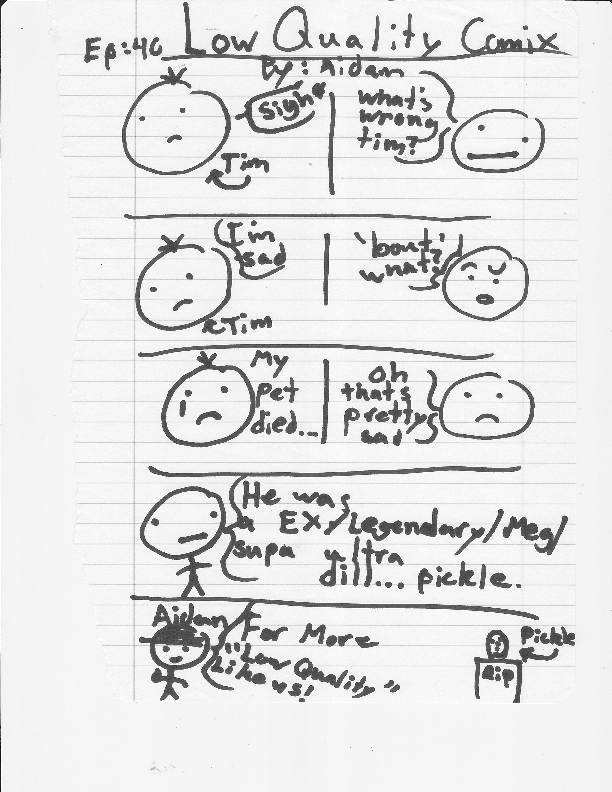 Ep:40 Low Quality Comix
By: Aidan
Sigh*
Tim
what's
wrong
tim?
I'm
sad
Tim
'bout
what?
My
pet
died...
Oh
that's
pretty
sad
He was
a EX/Legendary/Meg/
supa ultra
dill... pickle.
Aidan
For More
"Low Quality"
Like us!
Pickle
Rip